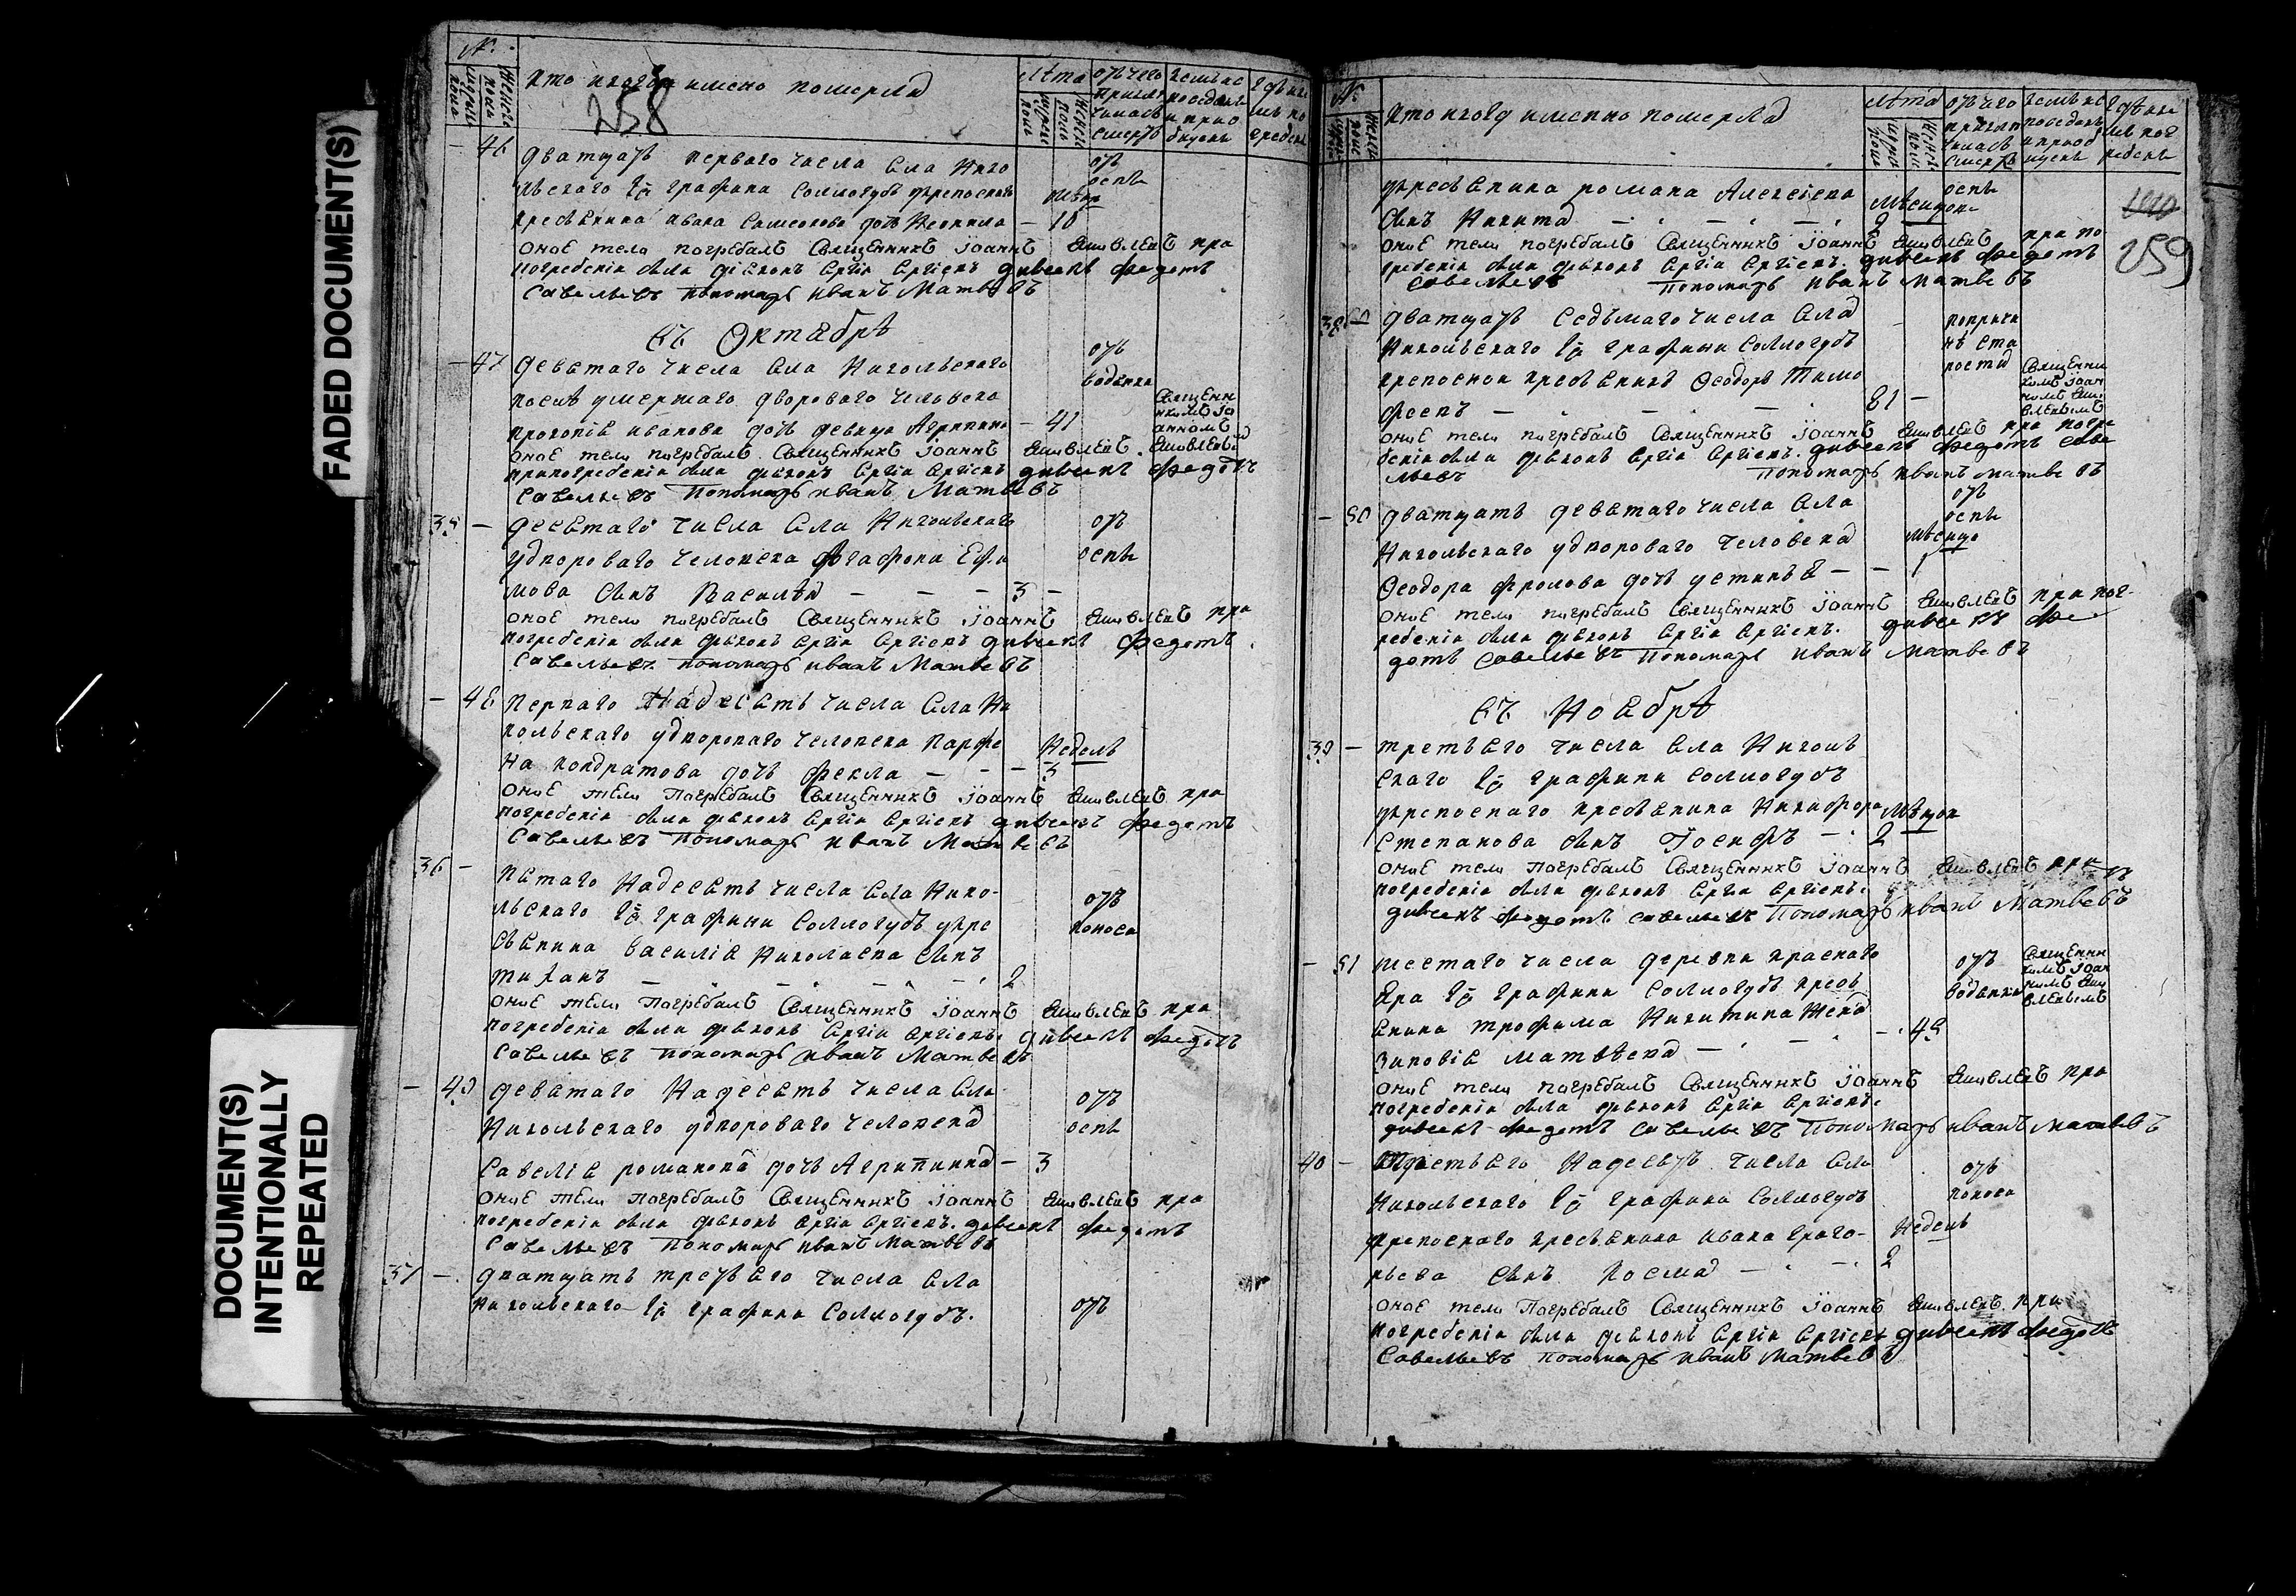 FADED DOCUMENT(S)
DOCUMENT(S)
INTENTIONALLY
REPEATED
№.
кто имено померли
258
Лѣта
46
дватцать перваго числа села Нико
льскаго графини Соллогубъ крепоснаго
10
отъ
оспы
оное тело погребалъ Священникъ Іоаннъ при
погребеніи были Сергіи Сергіевъ дьячекъ Федотъ
Савельевъ Пономарь Иванъ Матвѣвъ
въ Октябрѣ
47
девятаго числа села Никольскаго
после умершаго двороваго человека
прокопія иванова дочь девица Агрипина – 41
отъ
водянки
оное тело погребалъ Священникъ Іоаннъ
припогребеніи были Сергіи Сергіевъ дьячекъ Федотъ
Савельевъ Пономарь Иванъ Матвѣвъ
35 –
десятаго числа села Никольскаго
удвороваго человека Агафона Ефи
мова сынъ Василѣй – – – 3 –
отъ
оспы
оное тело погребалъ Священникъ Іоаннъ при
погребеніи были Сергіи Сергіевъ дьячекъ Федотъ
Савельевъ Пономарь Иванъ Матвѣвъ
– 48
перваго Надесять числа села Ни
кольскаго удвороваго человека Парфе
на кондратова дочь фекла – – – 3
Недель
оное тело погребалъ Священникъ Іоаннъ при
погребеніи были Сергіи Сергіевъ дьячекъ Федотъ
Савельевъ Пономарь Иванъ Матвевъ
36 –
пятаго Надесять числа села Нико-
льскаго графини Соллогубъ укре
стьянина василія Николаева сынъ
тиханъ – – – 2
отъ
поноса
оное тело погребалъ Священникъ Іоаннъ при
погребеніи были Сергіи Сергіевъ дьячекъ Федотъ
Савельевъ Пономарь Иванъ Матвевъ
– 49
девятаго Надесять числа села
Никольскаго удвороваго человека
Савелія романова дочь Агрипина – 3
отъ
оспы
оное тело погребалъ Священникъ Іоаннъ при
погребеніи были Сергіи Сергіевъ дьячекъ Федотъ
Савельевъ Пономарь Иванъ Матвевъ
37 –
дватцать третьяго числа села
Никольскаго графини Соллогубъ.
отъ
№.
кто имянно померли
Лѣта
259
крестьянина романа Алексіева
сынъ Никита – – – 2
оспы
оное тело погребалъ Священникъ Іоаннъ при по
гребеніи были Сергіи Сергіевъ. дьячекъ Федотъ
Савельевъ Пономарь Иванъ Матвевъ
38 –
дватцать Седьмаго числа села
Никольскаго графини Соллогубъ
крепосной крестьянинъ Феодоръ Тимо
феевъ – – – 81 –
попричи
нѣ ста
рости
Священни
комъ Іоан
номъ
оное тело погребалъ Священникъ Іоаннъ при погре
беніи были Сергіи Сергіевъ. дьячекъ Федотъ Саве
льевъ Пономарь Иванъ Матвевъ
– 50
дватцать девятаго числа села
Никольскаго удвороваго человека
Феодора фролова дочь устинья – –
отъ
оспы
оное тело погребалъ Священникъ Іоаннъ при пог-
ребеніи были Сергіи Сергіевъ. дьячекъ Фе
дотъ Савельевъ Пономарь Иванъ Матвевъ
въ Ноябрѣ
39 –
третьяго числа села Николь
скаго графини Соллогубъ
укрепоснаго крестьянина Никифора
Степанова сынъ Іосифъ – 2
оное тело погребалъ Священникъ Іоаннъ при
погребеніи были Сергіи Сергіевъ.
дьячекъ Федотъ Савельевъ Пономарь Иванъ Матвевъ
– 51
шестаго числа деревни краснаго
яра графини Соллогубъ кресть
янина трофима Никитина Жена
Зиновія матвѣева – – 45
отъ
водянки
Священни
комъ Іоан
номъ
оное тело погребалъ Священникъ Іоаннъ при
погребеніи были Сергіи Сергіевъ.
дьячекъ Федотъ Савельевъ Пономарь Иванъ Матвевъ
40 –
третьяго Надесять числа села
Никольскаго графини Соллогубъ
крепоснаго крестьянина ивана григо-
рьева сынъ Косма – – 2
отъ
поноса
Недель
оное тело Погребалъ Священникъ Іоаннъ при
погребеніи были Сергіи Сергіевъ дьячекъ Федотъ
Савельевъ Пономарь Иванъ Матвевъ